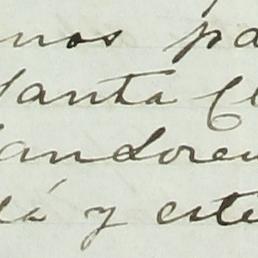 nos pa
Santa Cl
andoren
lá y este